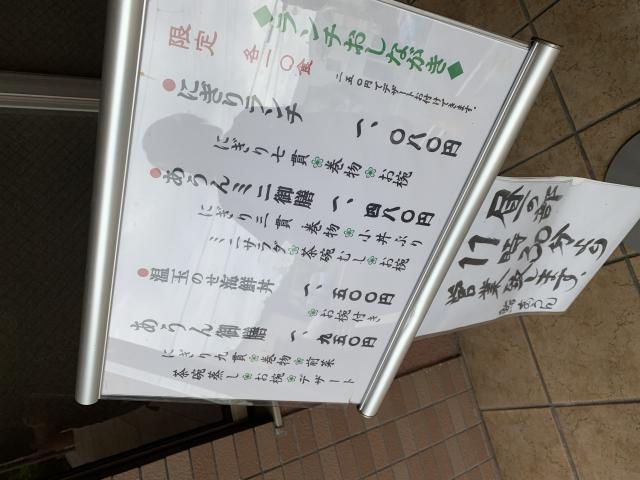 ◆ランチおしながき◆
限定 各一〇食
二五〇円でデザートお付けできます.
●にぎりランチ 一、〇八〇円
にぎり七貫 巻物 お椀
●あうんミニ御膳 一、四八〇円
にぎり三貫 巻物 小丼ぶり
ミニサラダ 茶碗むし お椀
●温玉のせ海鮮丼 一、五〇〇円
お椀付き
あうん御膳 一、九五〇円
にぎり九貫 巻物 前菜
茶碗蒸し お椀 デザート
昼の部
11時30分から
営業致します.
鮨あうん